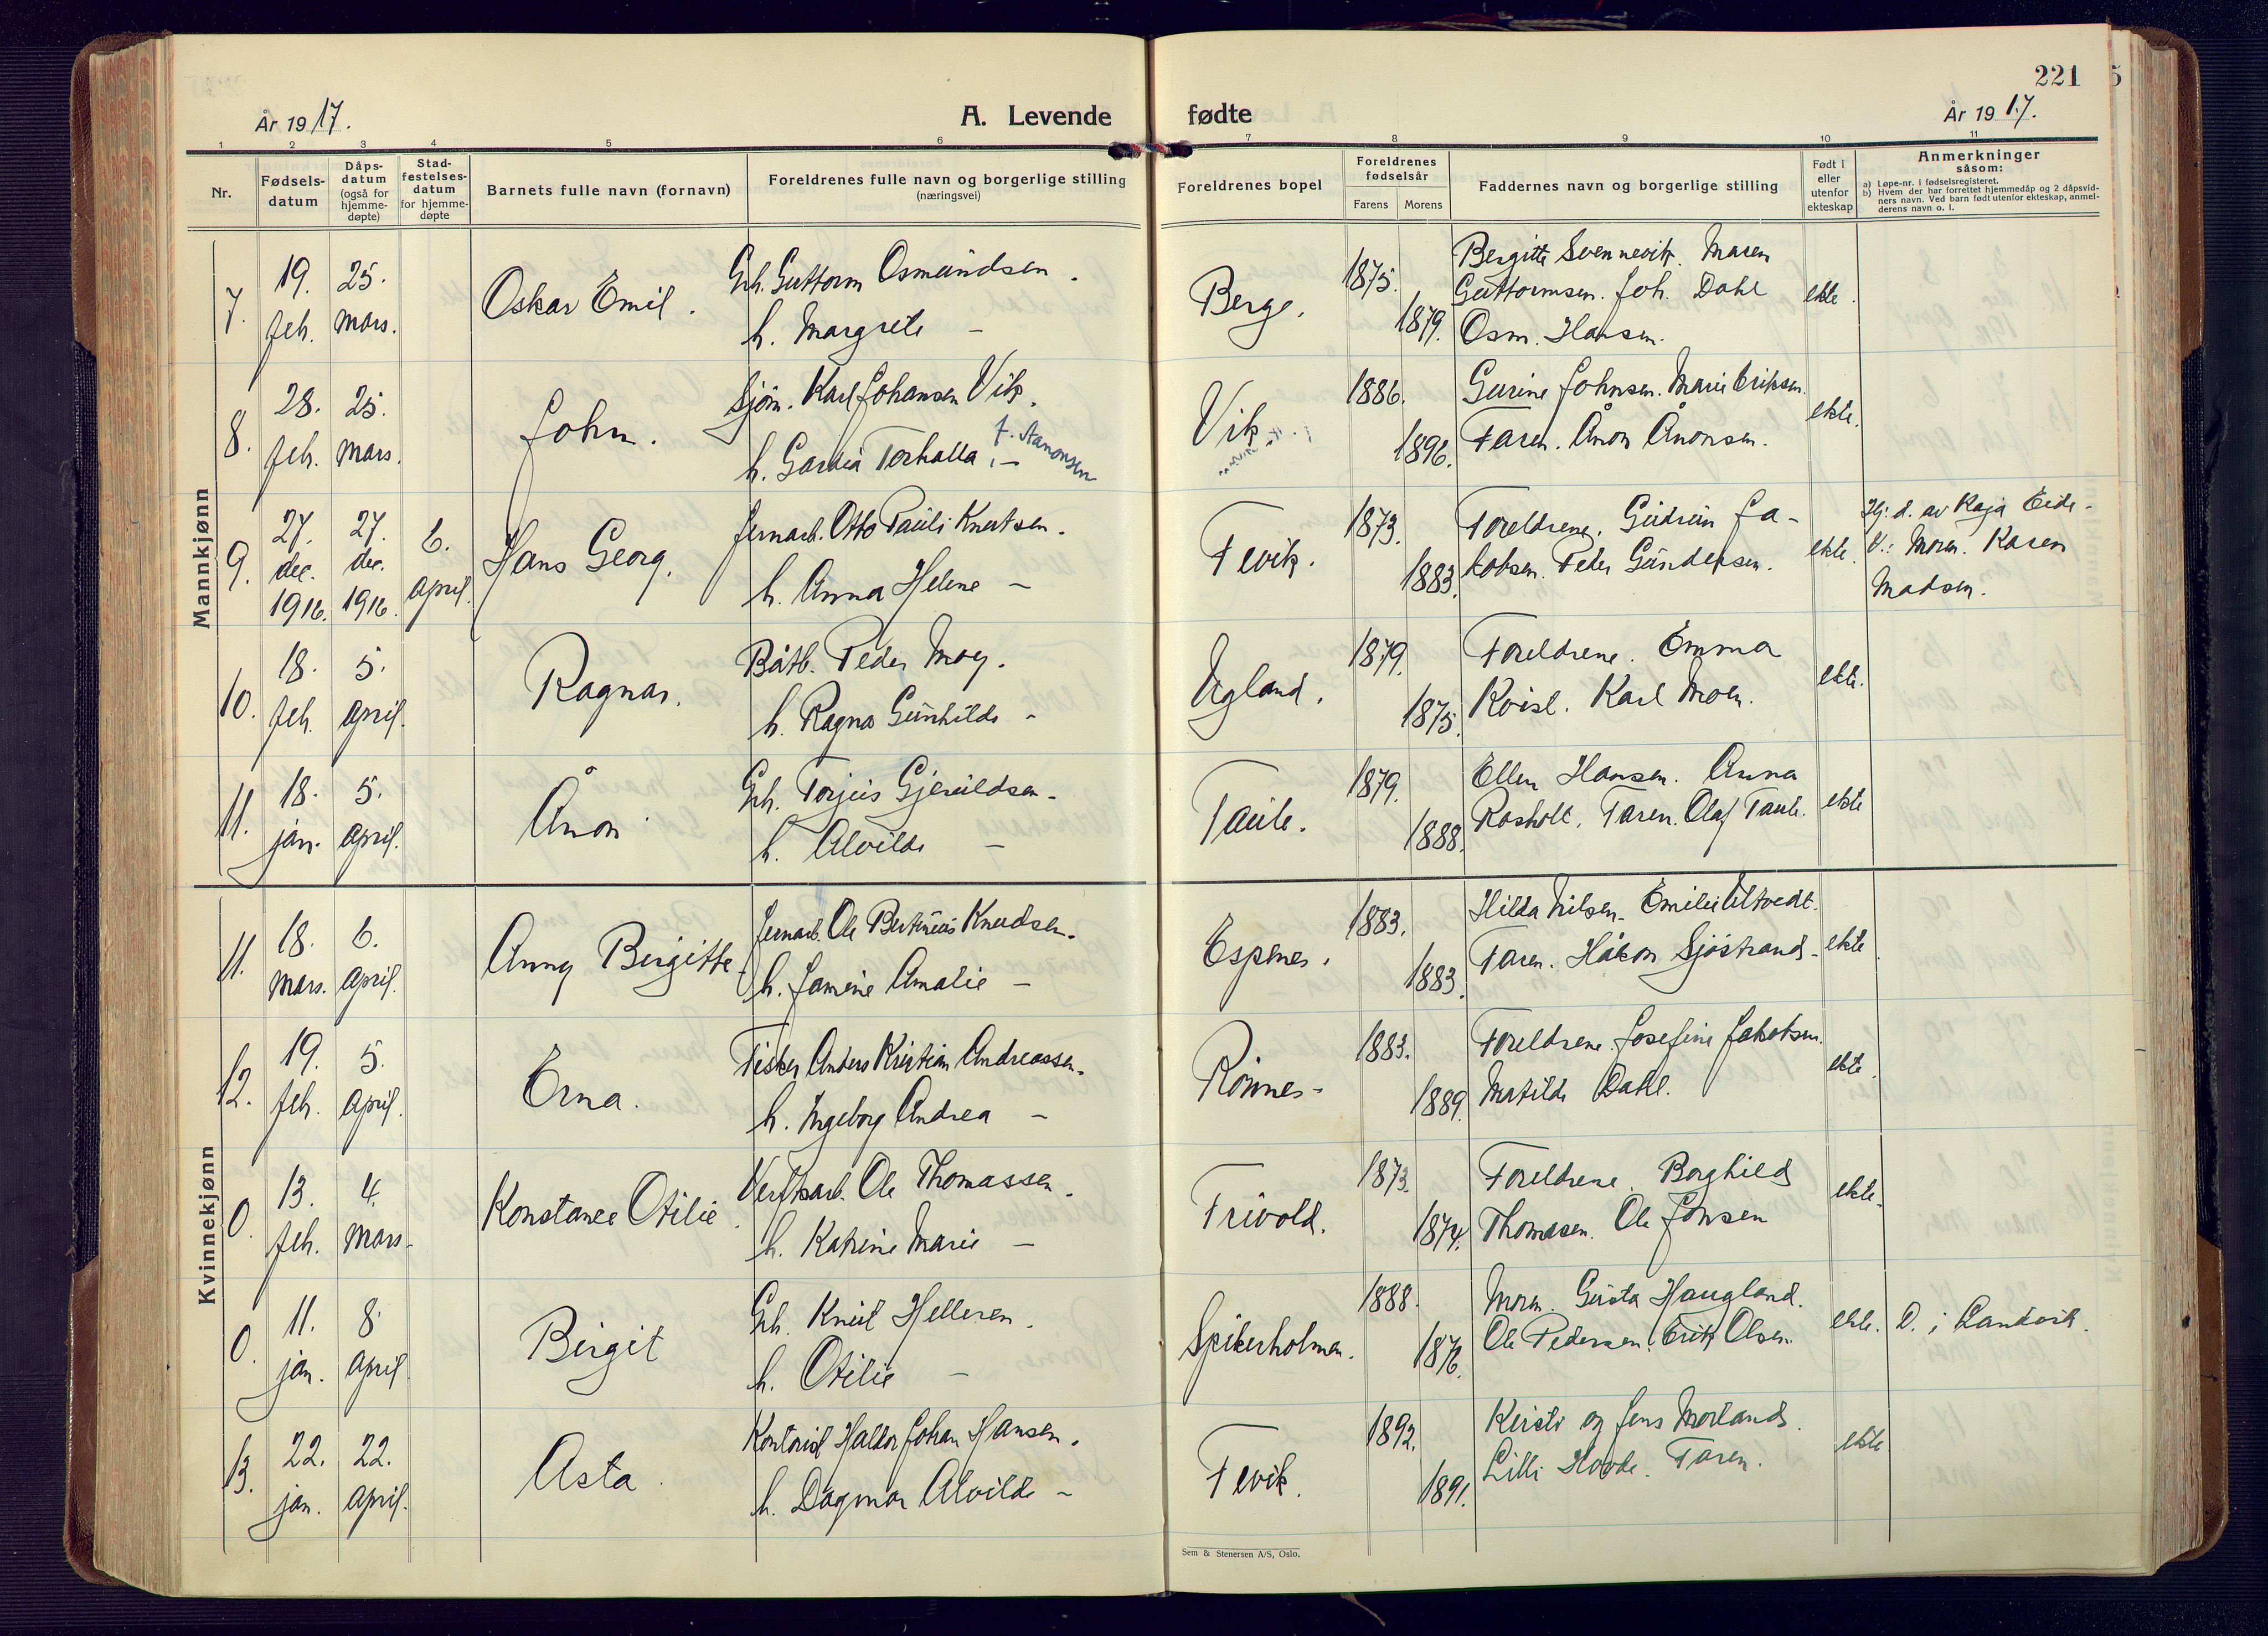 221
År 1917.
A. Levende fødte
År 1917.
1 2 3 4 5 6 7 8 9 10 11
Nr.
Fødsels-
datum
Dåps-
datum
(også for
hjemme-
døpte)
Stad-
festelses-
datum
for hjemme-
døpte
Barnets fulle navn (fornavn)
Foreldrenes fulle navn og borgerlige stilling
(næringsvei)
Foreldrenes bopel
Foreldrenes
fødselsår
Farens Morens
Faddernes navn og borgerlige stilling
Født i
eller
utenfor
ekteskap
Anmerkninger
såsom:
a) Løpe-nr. i fødselsregisteret.
b) Hvem der har forrettet hjemmedåp og 2 dåpsvid-
ners navn. Ved barn født utenfor ekteskap, anmel-
derens navn o. l.
Mannkjønn
7.
19.
feb.
25.
mars.
Oskar Emil.
Gbr. Guttorm Osmundsen.
h. Margrete —
Berge.
1875.
1879.
Bergitte Svennevik. Maren
Guttormsen. Joh. Dahl
Osm. Hansen.
ekte.
8.
28.
feb.
25.
mars.
John.
Sjøm. Karl Johansen Vik.
h. Torhalla. —
f. Aamonsen
Vik.
1886.
1896.
Gurine Johnsen. Marie Eriksen.
Faren. Ånon Ånonsen.
ekte.
9.
27.
dec.
1916.
27.
dec.
1916.
6.
april.
Hans Georg.
Jernarb. Otto Pauli Knutsen.
h. Anna Helene —
Fevik.
1873.
1883.
Foreldrene. Gudrun Ja-
kobsen. Peder Gundersen.
ekte.
Hj. d. av Kaja Eide.
V.: Moren. Karen
Madsen.
10.
18.
feb.
5.
april.
Ragnar.
Båtb. Peder Moy.
h. Ragna Gunhilde —
Ugland.
1879.
1875.
Foreldrene. Emma
Kvist. Karl Moen.
ekte.
11.
18.
jan.
5.
april.
Ånon
Gbr. Torjus Gjeruldsen.
h. Alvilde —
Taule.
1879.
1888.
Ellen Hansen. Anna
Rosholt. Faren. Olaf Taule.
ekte
Kvinnekjønn
11.
18.
mars.
6.
april.
Anny Birgitte
Jernarb. Ole Bertinius Knudsen.
h. Jamine Amalie —
Espenes.
1883.
1883.
Hilda Nilsen. Emilie Ultvedt.
Faren. Håkon Sjöstrand.
ekte
12.
19.
feb.
5.
april.
Erna.
Fisker Anders Kristian Andreassen.
h. Ingeborg Andrea —
Rönnes.
1883.
1889.
Foreldrene. Josefine Jakobsen.
Matilde Dahl.
ekte.
0.
13.
feb.
4.
mars.
Konstance Otilie.
Verftsarb. Ole Thomassen.
h. Katrine Marie —
Frivold.
1873.
1874.
Foreldrene. Borghild
Thomasen. Ole Jonsen
ekte.
0.
11.
jan.
8.
april
Birgit
Gbr. Knut Helleren.
h. Otilie —
Spikerholmen.
1888.
1876.
Moren. Gusta Haugland.
Ole Pedersen. Erik Olsen.
ekte.
D. i Landvik.
13.
22.
jan.
22.
april.
Asta.
Kontorist Haldor Johan Hansen.
h. Dagmar Alvilde —
Fevik.
1892.
1891.
Kirsti og Jens Morland.
Lilli Hovde. Faren.
ekte
Sem & Stenersen A/S, Oslo.